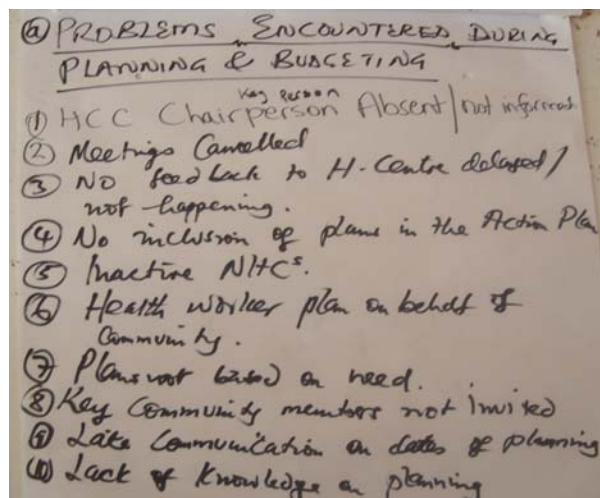 ⓐ PROBLEMS ENCOUNTERED DURING
PLANNING & BUDGETING
Key Person
① HCC Chairperson Absent/not informed
② Meetings Cancelled
③ No feedback to H. Centre delayed/
not happening.
④ No inclusion of plans in the Action Plan
⑤ Inactive NHCs.
⑥ Health worker plan on behalf of
Community.
⑦ Plans not based on need.
⑧ Key Community members not invited
⑨ Late Communication on dates of planning
⑩ Lack of Knowledge on planning